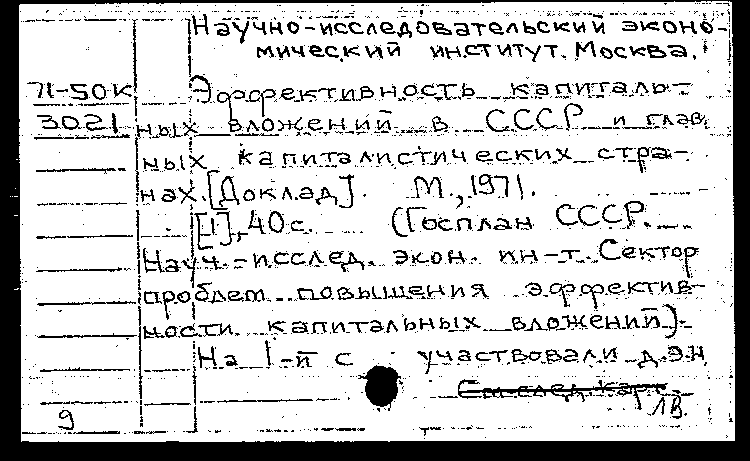 Научно-исследовательский эконо-
мический институт. Москва.
71-50К Эффективность капиталь-
3021 ных вложений в СССР и глав
ных капиталистических стра-
нах. [Доклад]. М., 1971.
[1], 40с. (Госплан СССР.
Науч.-исслед. экон. ин-т. Сектор
проблем повышения эффектив-
ности капитальных вложений).
На 1-й с участвовали д.э.н
См след. карт.
9 ЛВ.